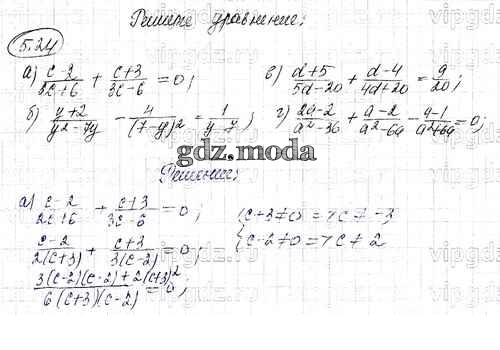 Решите уравнение:
5.24
а) (c-2)/(2c+6) + (c+3)/(3c-6) = 0;
в) (d+5)/(5d-20) + (d-4)/(4d+20) = 9/20;
б) (y+2)/(y²-7y) - 4/(7-y)² = 1/(y-7);
г) (2a-2)/(a²-36) + (a-2)/(a²-6a) - (a-1)/(a²+6a) = 0;
gdz.moda
Решение:
а) (c-2)/(2c+6) + (c+3)/(3c-6) = 0;
{c+3≠0 => c≠-3
(c-2)/(2(c+3)) + (c+3)/(3(c-2)) = 0;
{c-2≠0 => c≠2
(3(c-2)(c-2)+2(c+3)²)/(6(c+3)(c-2)) = 0;
vipgdz.ru